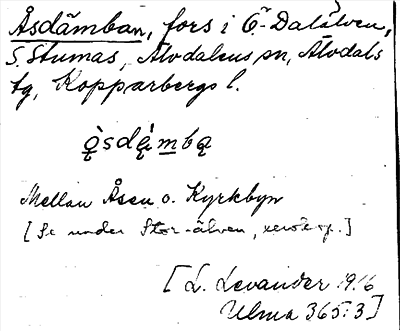 Åsdämban, fors i Ö-Dalälven,
S. Stumas, Älvdalens sn, Älvdals
tg, Kopparbergs l.
ǫ̀sdą́mbą
Mellan Åsen o. Kyrkbyn
[Se under Stor-älven,
[L. Levander 1916
Ulma 365:3]